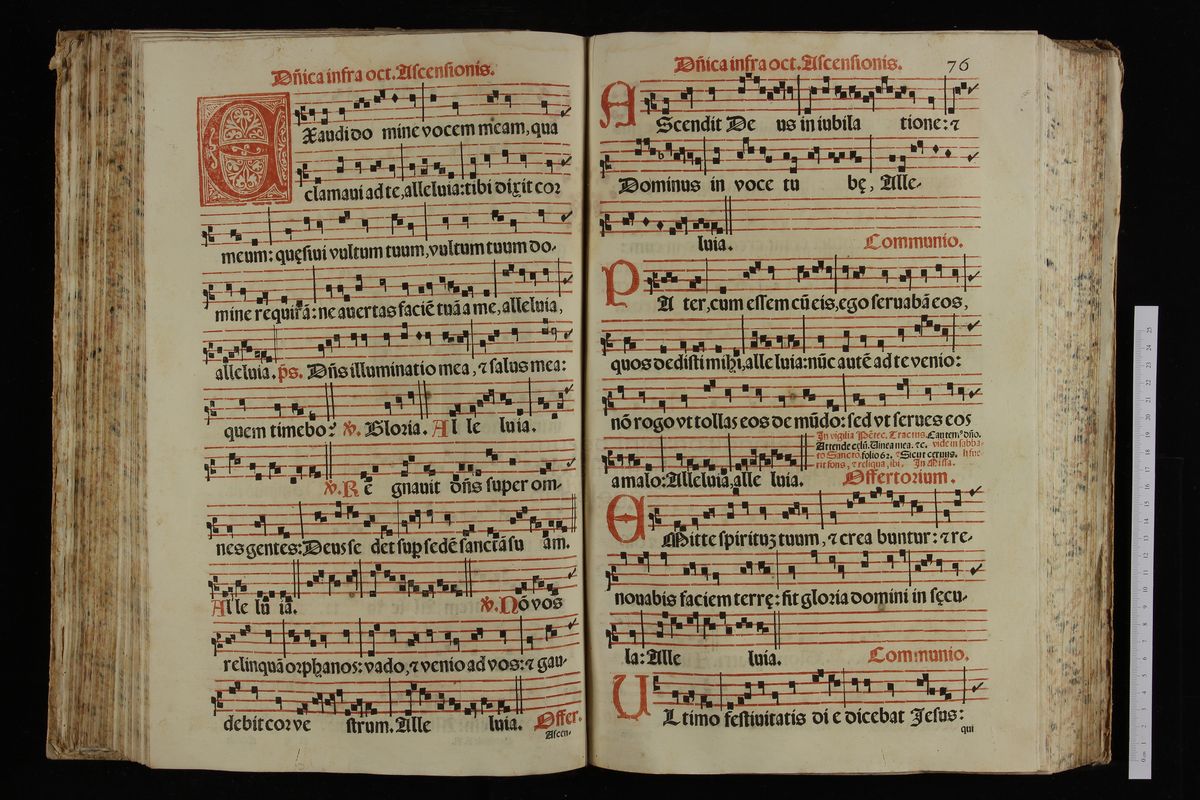 Dñica infra oct. Ascensionis.
EXaudi do mine vocem meam, qua
clamaui ad te, alleluia: tibi dixit cor
meum: quęsiui vultum tuum, vultum tuum do-
mine requirā: ne auertas faciē tuā a me, alleluia,
alleluia. ps. Dñs illuminatio mea, ⁊ salus mea:
quem timebo? ℣. Gloria. Al le luia.
℣. Re gnauit dñs super om-
nes gentes: Deus se det sup sedē sanctā su am.
Alle lu ia. ℣. Nō vos
relinquā orphanos: vado, ⁊ venio ad vos: ⁊ gau-
debit cor ve strum. Alle luia. Offer.
Ascen-
Dñica infra oct. Ascensionis. 76
AScendit De us in iubila tione: ⁊
Dominus in voce tu bę, Alle-
luia. Communio.
PA ter, cum essem cū eis, ego seruabā eos,
quos dedisti mihi, alle luia: nūc autē ad te venio:
nō rogo vt tollas eos de mūdo: sed vt serues eos
In vigilia Pētec. Tractus. Cantem⁹ dño.
Attende cęlū. Vinea mea. ⁊c. vide in sabba-
to Sancto, folio 62. ⁊ Sicut ceruus. si fue-
rit fons, ⁊ reliqua, ibi. In Missa.
a malo: Alleluia, alle luia. Offertorium.
EMitte spirituz tuum, ⁊ crea buntur: ⁊ re-
nouabis faciem terrę: sit gloria domini in sęcu-
la: Alle luia. Communio.
VLtimo festiuitatis di e dicebat Jesus:
qui